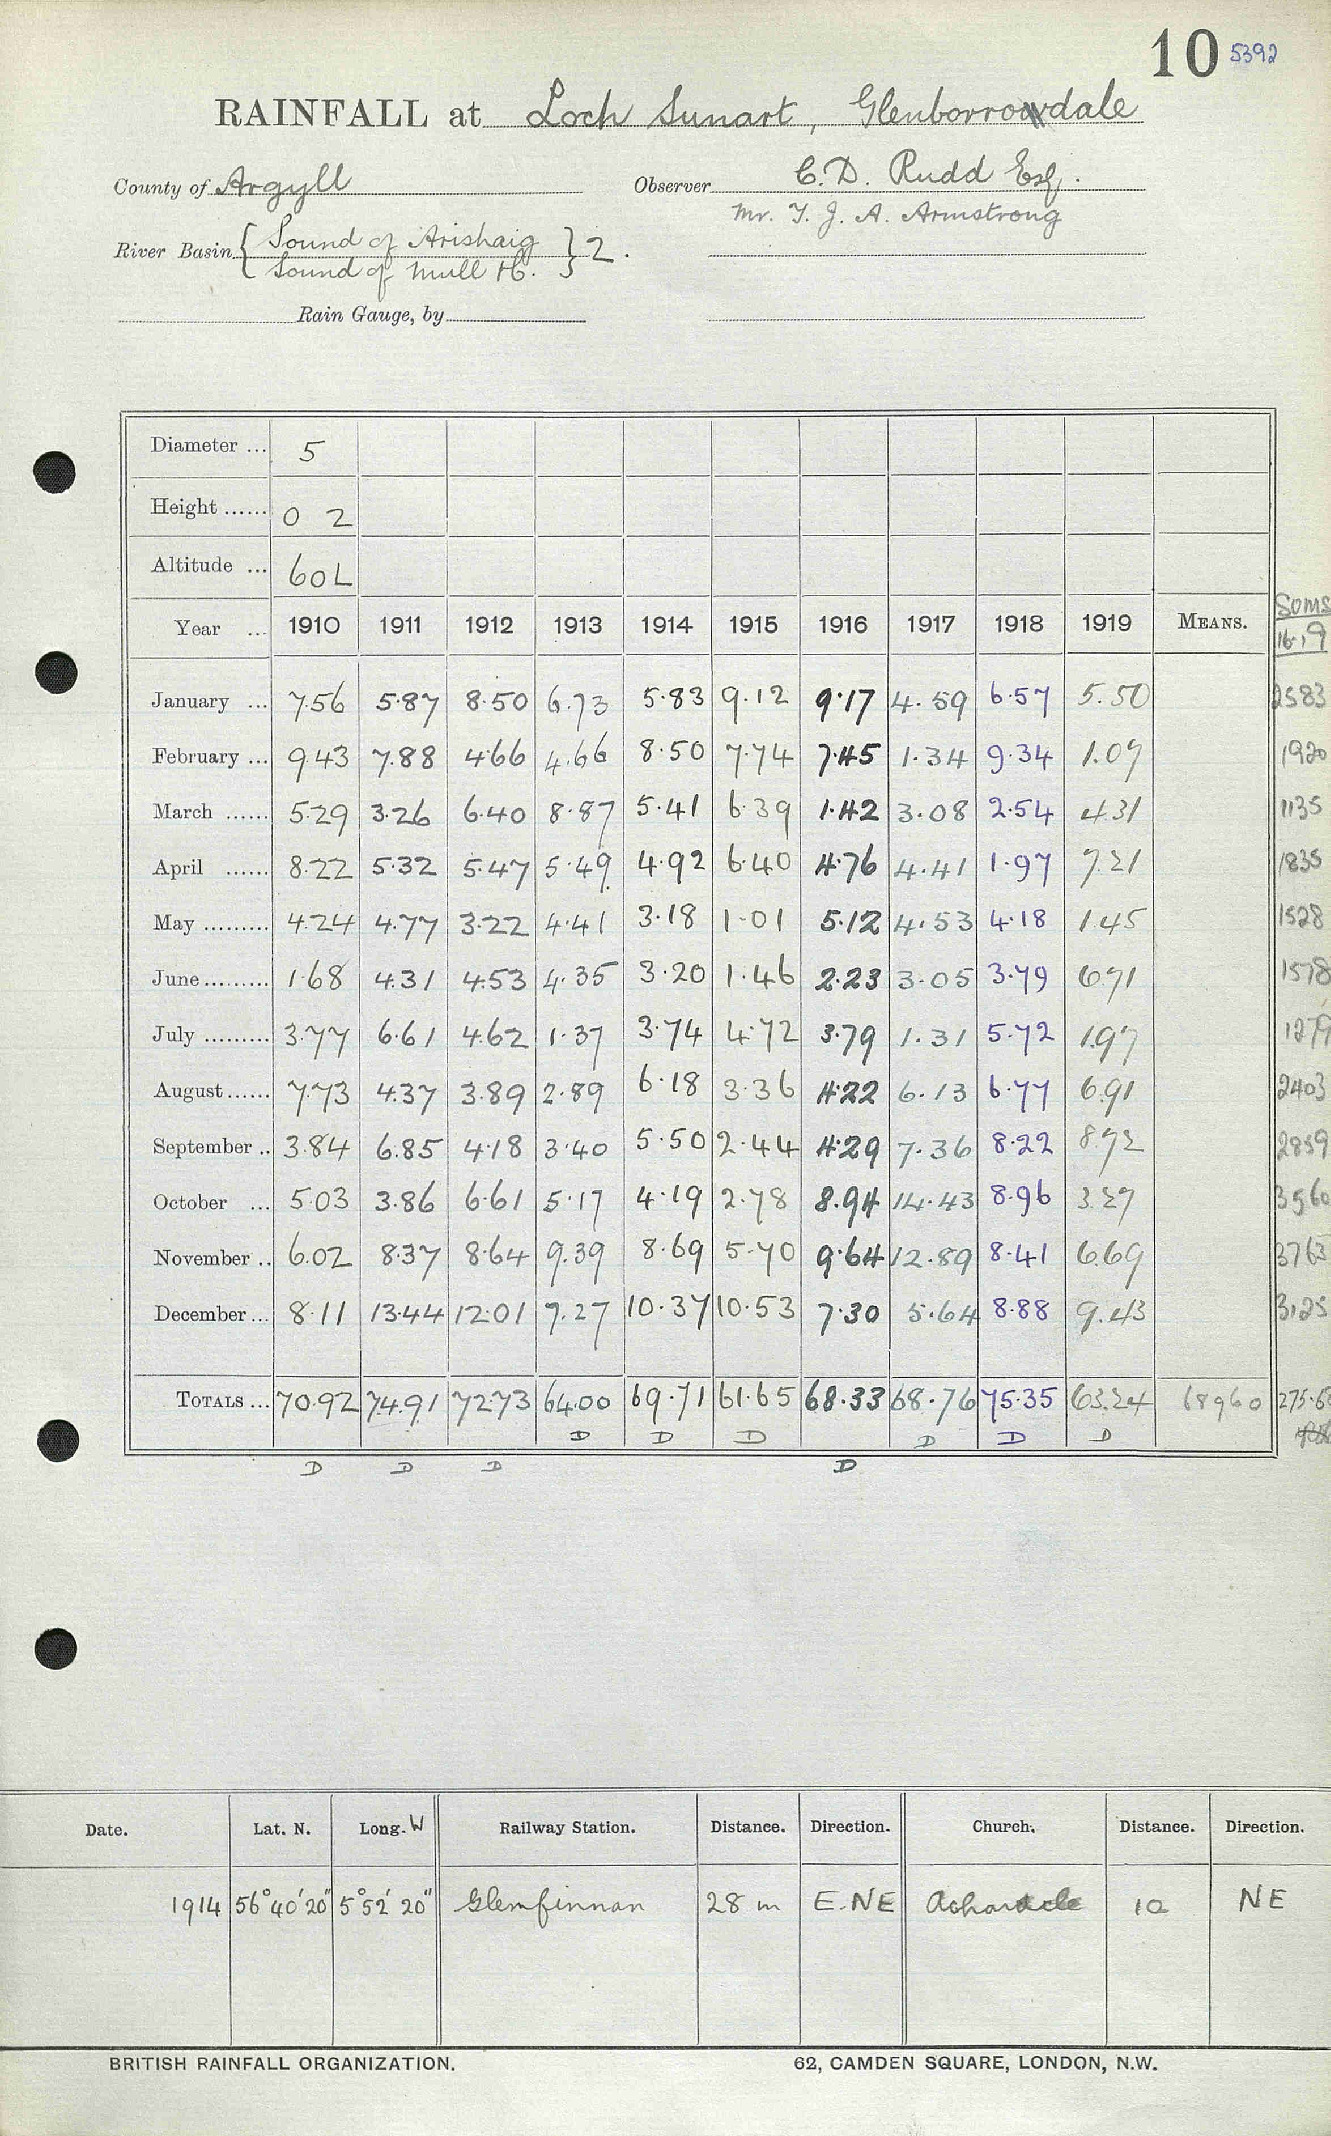 10 5392
RAINFALL at Loch Sunart, Glenborrodale
County of Argyll Observer C. D. Rudd Esq.
Mr. T. J. A. Armstrong
River Basin { Sound of Arishaig
Sound of Mull &c. } 2.
Rain Gauge, by
Diameter ... 5
Height ...... 0 2
Altitude ... 60L
Year ... 1910 1911 1912 1913 1914 1915 1916 1917 1918 1919 MEANS. Soms 16-19
January ... 7.56 5.87 8.50 6.73 5.83 9.12 9.17 4.59 6.57 5.50 2583
February ... 9.43 7.88 4.66 4.66 8.50 7.74 7.45 1.34 9.34 1.07 1920
March ...... 5.29 3.26 6.40 8.87 5.41 6.39 1.42 3.08 2.54 4.31 1135
April ...... 8.22 5.32 5.47 5.49 4.92 6.40 4.76 4.41 1.97 7.21 1835
May ......... 4.24 4.77 3.22 4.41 3.18 1.01 5.12 4.53 4.18 1.45 1528
June ......... 1.68 4.31 4.53 4.35 3.20 1.46 2.23 3.05 3.79 6.71 1578
July ......... 3.77 6.61 4.62 1.37 3.74 4.72 3.79 1.31 5.72 1.97 1279
August ...... 7.73 4.37 3.89 2.89 6.18 3.36 4.22 6.13 6.77 6.91 2403
September .. 3.84 6.85 4.18 3.40 5.50 2.44 4.29 7.36 8.22 8.72 2859
October ... 5.03 3.86 6.61 5.17 4.19 2.78 8.94 14.43 8.96 3.27 3560
November .. 6.02 8.37 8.64 9.39 8.69 5.70 9.64 12.89 8.41 6.69 3763
December ... 8.11 13.44 12.01 7.27 10.37 10.53 7.30 5.64 8.88 9.43 3125
TOTALS ... 70.92 74.91 72.73 64.00 69.71 61.65 68.33 68.76 75.35 63.24 68960 275.68
D D D D D D
D D D D
Date. Lat. N. Long. W Railway Station. Distance. Direction. Church. Distance. Direction.
1914 56°40'20" 5°52'20" Glenfinnan 28 m E.NE Acharacle 10 NE
BRITISH RAINFALL ORGANIZATION. 62, CAMDEN SQUARE, LONDON, N.W.